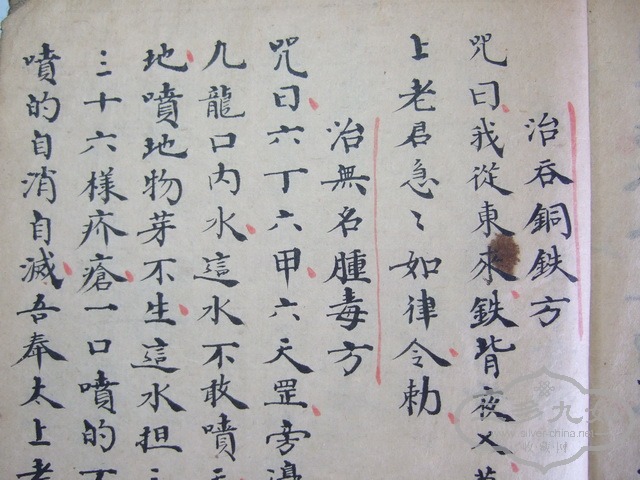 治吞銅鉄方
咒曰我從東來鉄背夜叉
上老君急〻如律令勅
治無名腫毒方
咒曰六丁六甲六天罡旁邊
九龍口内水這水不敢噴
地噴地物芽不生這水担
三十六様疥瘡一口噴的
噴的自消自滅吾奉太上老